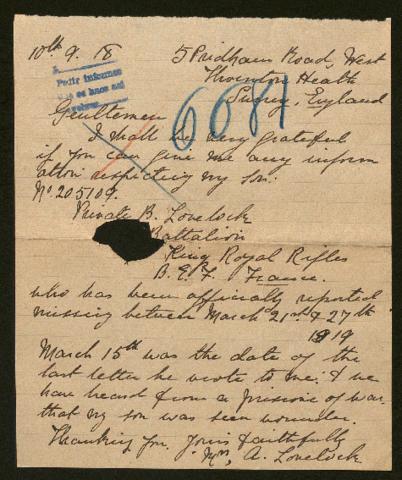 10th. 9. 18 5 Pridham Road, West
Thornton Heath
Surrey, England
6681
Gentlemen
I shall be very grateful
if you can give me any inform
ation respecting my son.
No. 205109.
Private B. Lovelock
Battalion
King Royal Rifles
B. E. F. France.
who has been officially reported
missing between March 21st & 27th
1919
March 15th was the date of the
last letter he wrote to me. & we
have heard from a prisoner of war
that my son was seen wounder.
Thanking you. Yours faithfully
Mrs, A. Lovelock